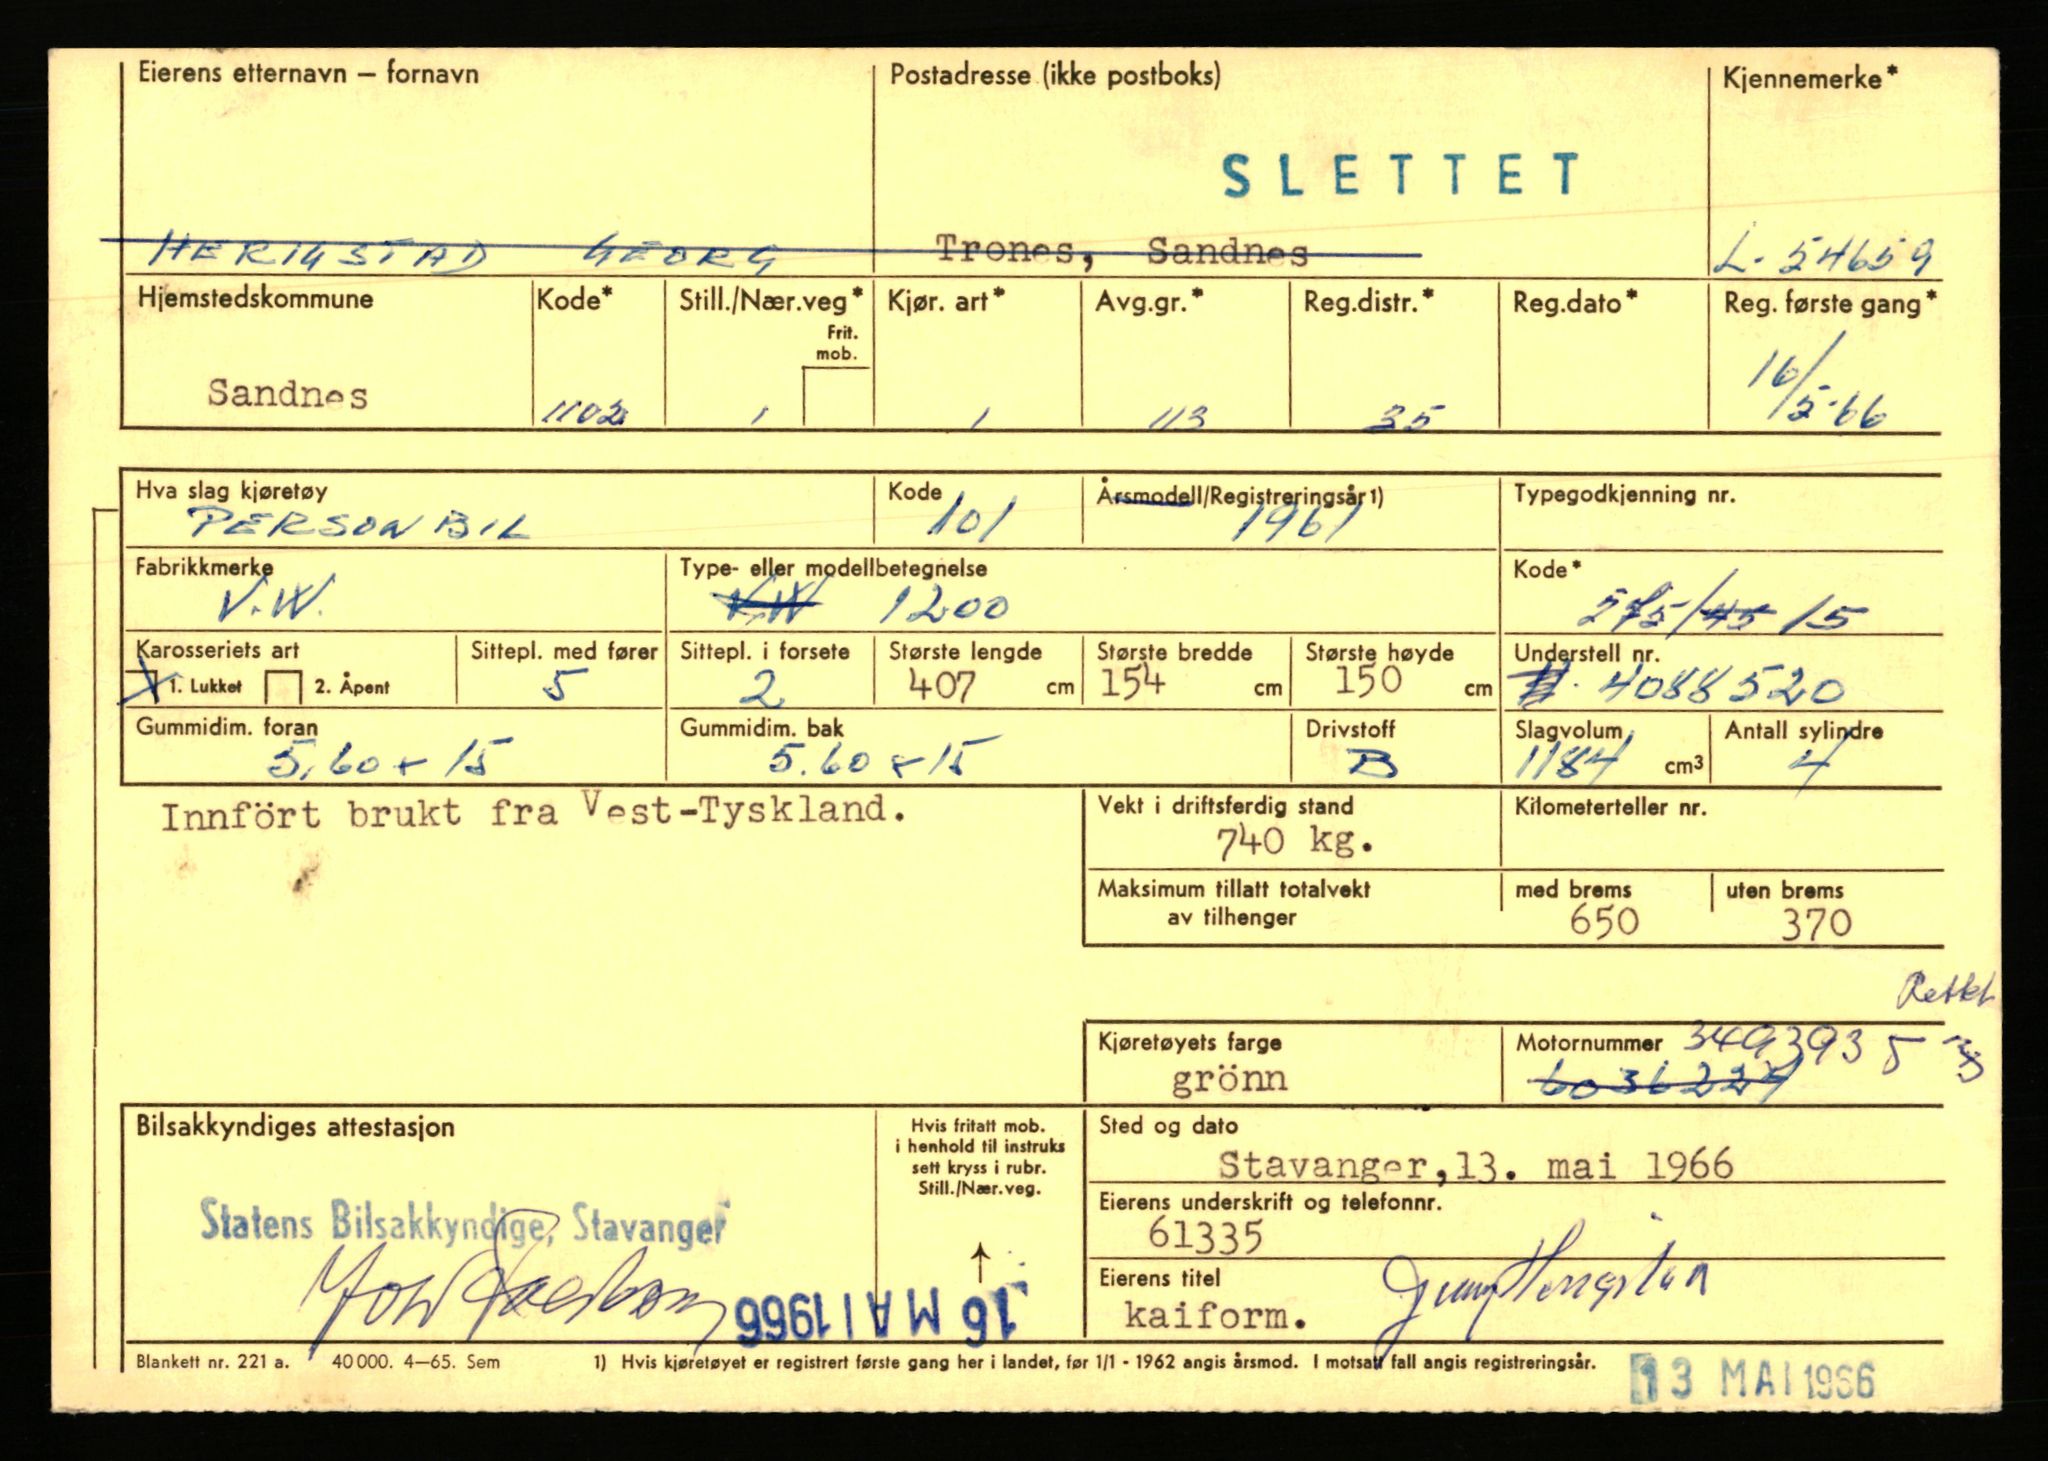 Eierens etternavn – fornavn
Postadresse (ikke postboks)
Kjennemerke*
SLETTET
HERIGSTAD GEORG
Trones, Sandnes
L-54659
Hjemstedskommune
Kode*
Still./Nær.veg*
Frit. mob.
Kjør. art*
Avg.gr.*
Reg.distr.*
Reg.dato*
Reg. første gang*
Sandnes
1102
1
1
113
35
16/5-66
Hva slag kjøretøy
Kode
Årsmodell/Registreringsår1)
Typegodkjenning nr.
PERSONBIL
101
1961
Fabrikkmerke
Type- eller modellbetegnelse
Kode*
V.W.
V.W 1200
275/45 15
Karosseriets art
Sittepl. med fører
Sittepl. i forsete
Største lengde
Største bredde
Største høyde
Understell nr.
X 1. Lukket
2. Åpent
5
2
407 cm
154 cm
150 cm
4088520
Gummidim. foran
Gummidim. bak
Drivstoff
Slagvolum
Antall sylindre
5.60 x 15
5.60 x 15
B
1184 cm3
4
Innfört brukt fra Vest-Tyskland.
Vekt i driftsferdig stand
Kilometerteller nr.
740 kg.
Maksimum tillatt totalvekt
av tilhenger
med brems
uten brems
650
370
Rettet
Kjøretøyets farge
Motornummer 3493935
grönn
6036224
Bilsakkyndiges attestasjon
Hvis fritatt mob.
i henhold til instruks
sett kryss i rubr.
Still./Nær.veg.
Sted og dato
Stavanger,13. mai 1966
Eierens underskrift og telefonnr.
61335
Statens Bilsakkyndige, Stavanger
Eierens titel
kaiform.
16 MAI 1966
Blankett nr. 221 a. 40 000. 4–65. Sem
1) Hvis kjøretøyet er registrert første gang her i landet, før 1/1 - 1962 angis årsmod. I motsatt fall angis registreringsår.
13 MAI 1966